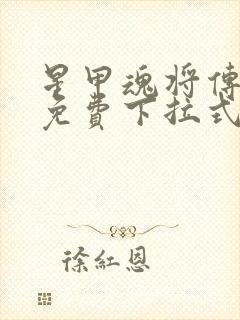 星甲魂将傳
免費下拉式
徐紅恩